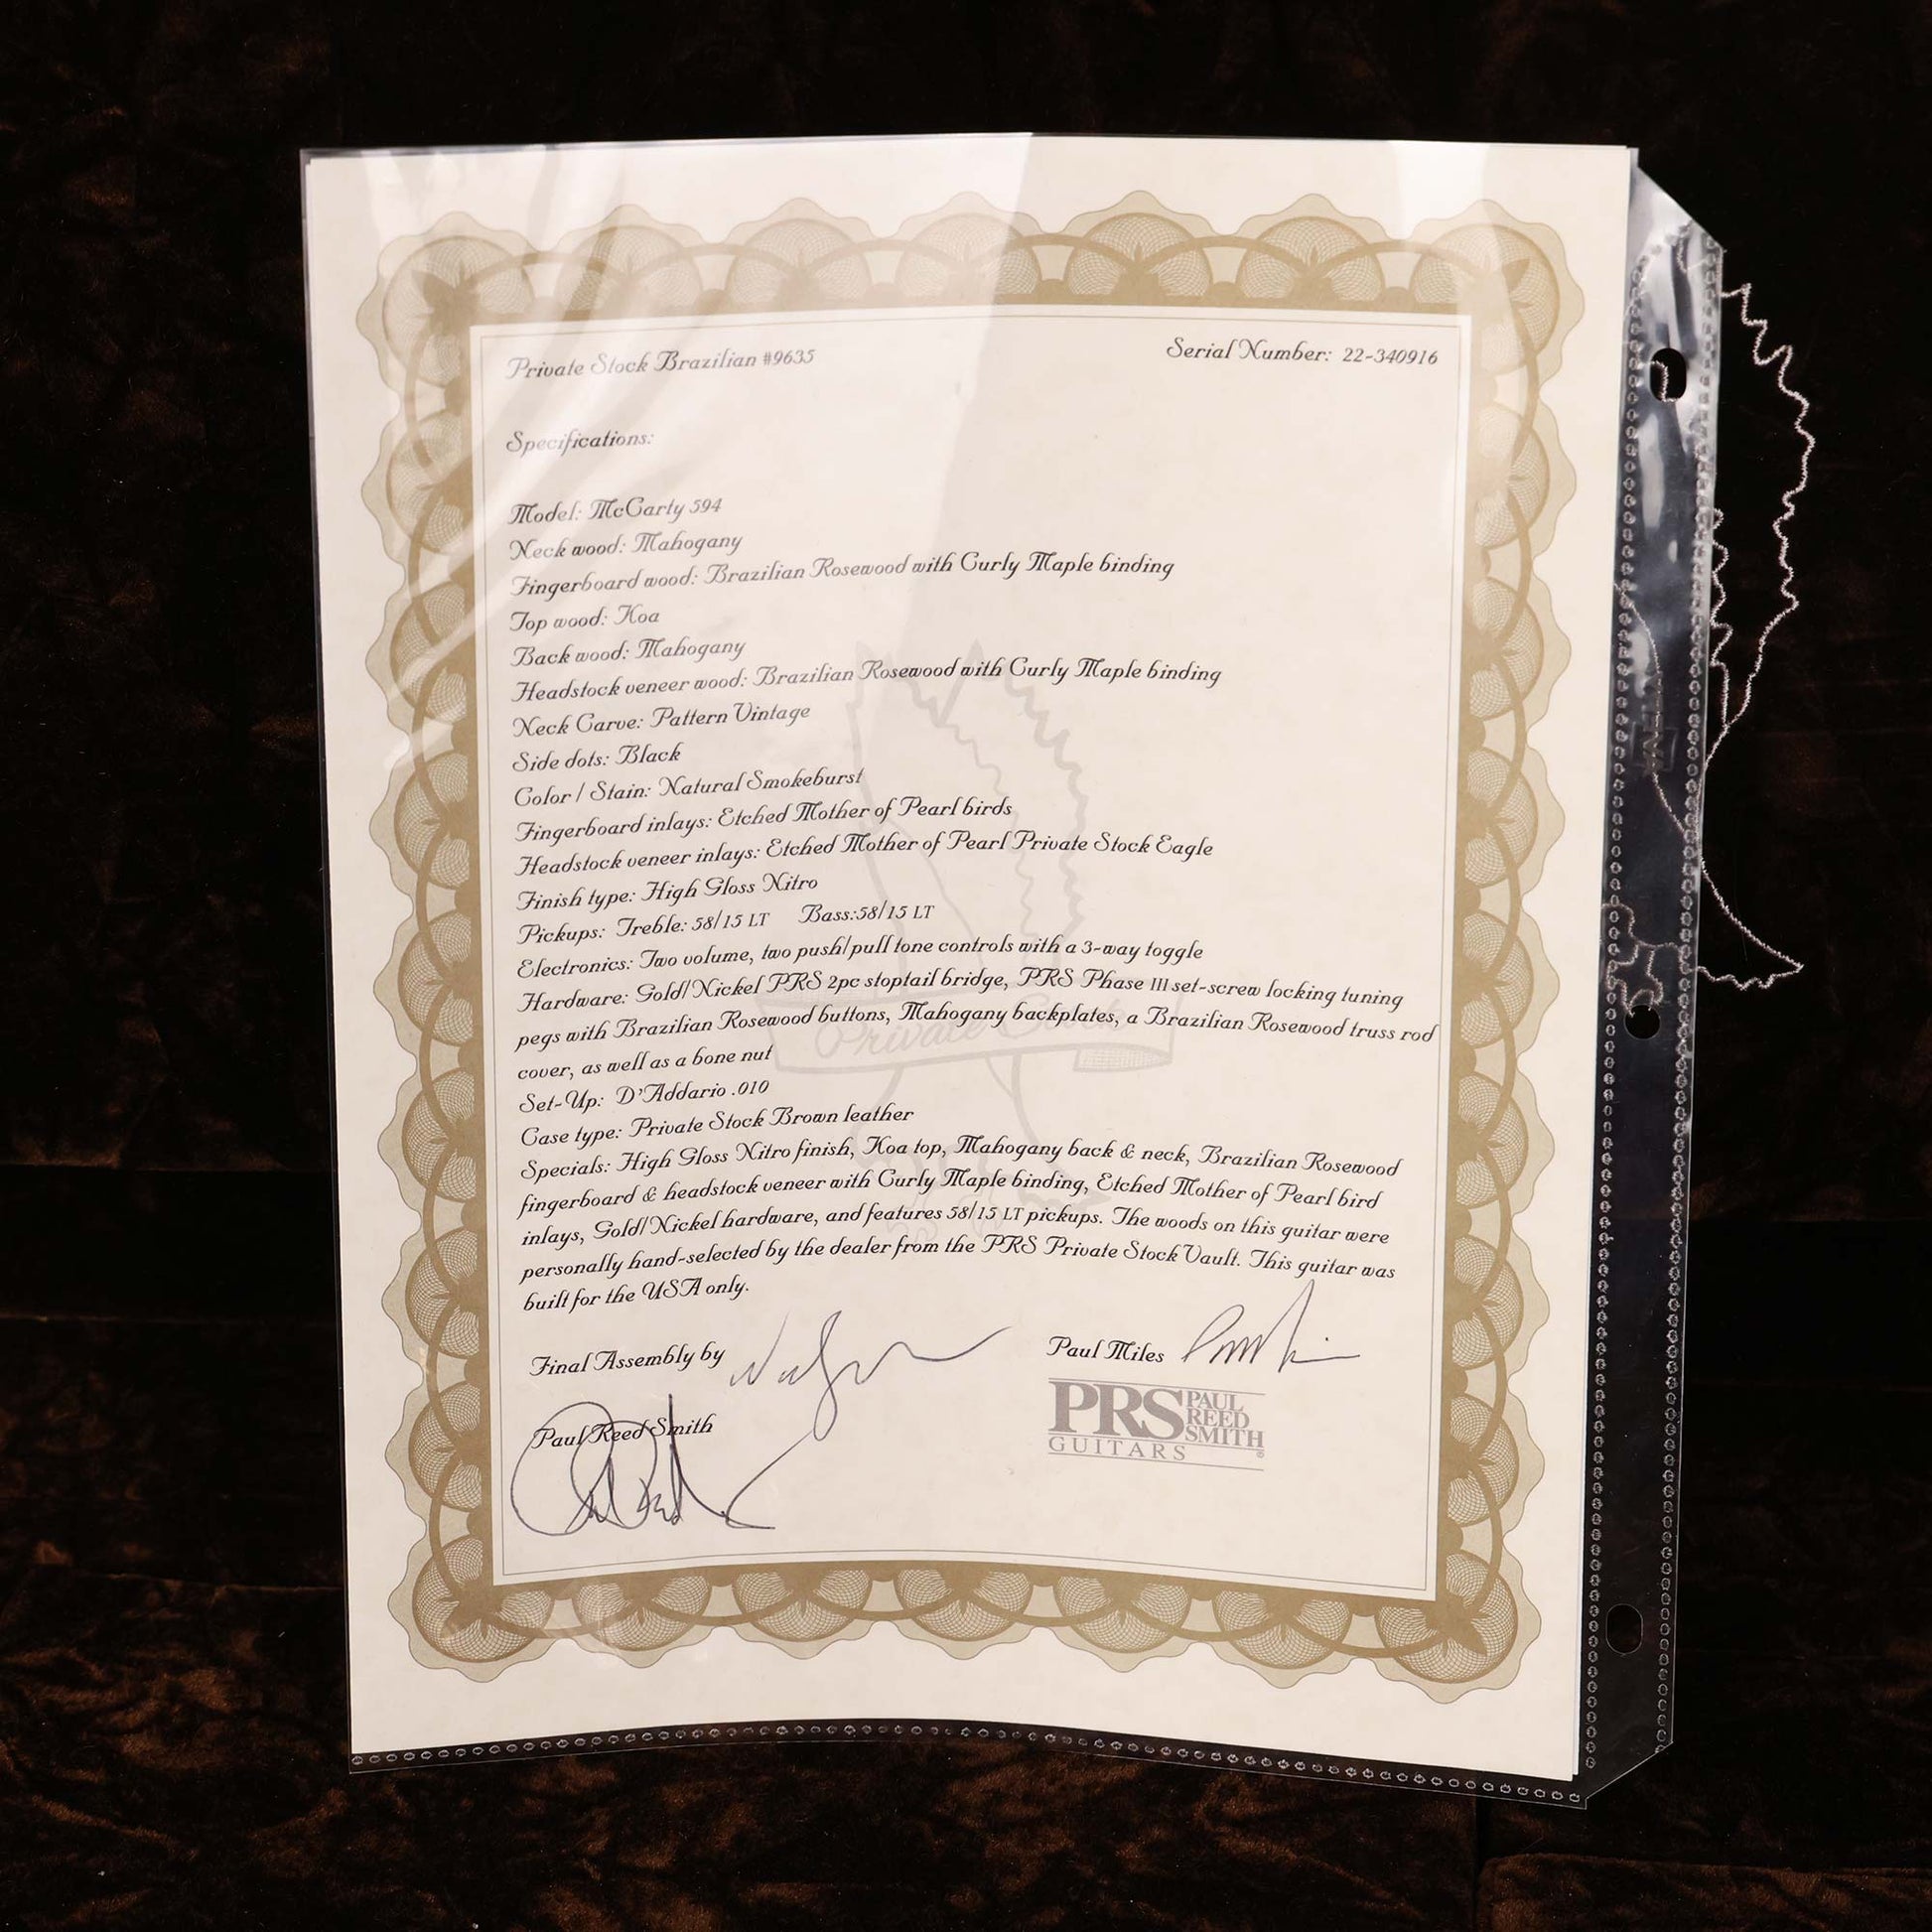 Private Stock Brazilian #9635
Serial Number: 22-340916
Specifications:
Model: McCarty 594
Neck wood: Mahogany
Fingerboard wood: Brazilian Rosewood with Curly Maple binding
Top wood: Koa
Back wood: Mahogany
Headstock veneer wood: Brazilian Rosewood with Curly Maple binding
Neck Carve: Pattern Vintage
Side dots: Black
Color / Stain: Natural Smokeburst
Fingerboard inlays: Etched Mother of Pearl birds
Headstock veneer inlays: Etched Mother of Pearl Private Stock Eagle
Finish type: High Gloss Nitro
Pickups: Treble: 58/15 LT Bass:58/15 LT
Electronics: Two volume, two push/pull tone controls with a 3-way toggle
Hardware: Gold/Nickel PRS 2pc stoptail bridge, PRS Phase III set-screw locking tuning
pegs with Brazilian Rosewood buttons, Mahogany backplates, a Brazilian Rosewood truss rod
cover, as well as a bone nut
Private Stock
Set-Up: D'Addario .010
Case type: Private Stock Brown leather
Specials: High Gloss Nitro finish, Koa top, Mahogany back & neck, Brazilian Rosewood
fingerboard & headstock veneer with Curly Maple binding, Etched Mother of Pearl bird
inlays, Gold/Nickel hardware, and features 58/15 LT pickups. The woods on this guitar were
personally hand-selected by the dealer from the PRS Private Stock Vault. This guitar was
built for the USA only.
Final Assembly by
Paul Miles
Paul Reed Smith
PRS PAUL
REED
SMITH
GUITARS